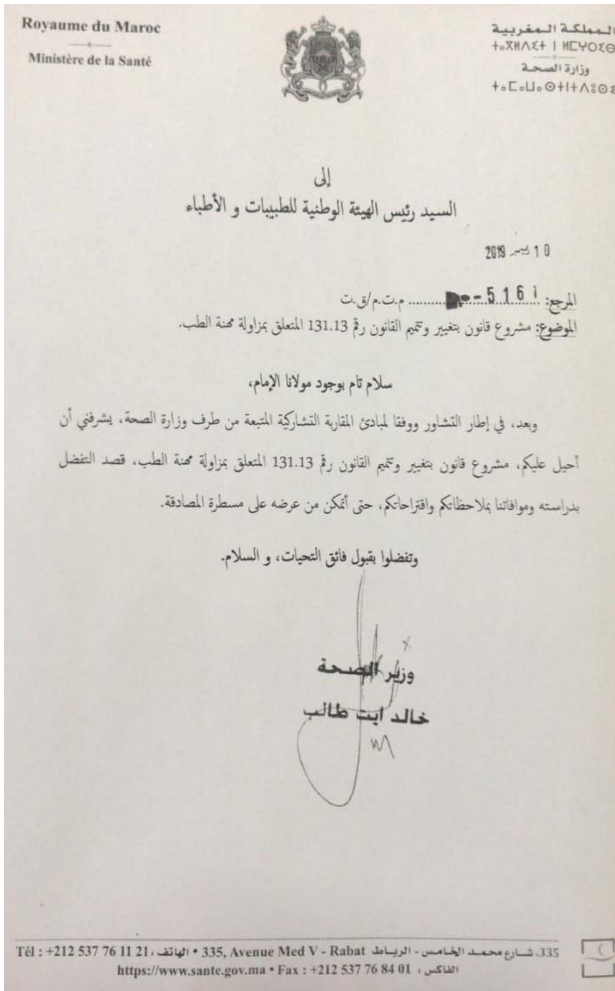 Royaume du Maroc
Ministère de la Santé
المملكة المغربية
ⵜⴰⴳⵍⴷⵉⵜ ⵏ ⵍⵎⵖⵔⵉⴱ
وزارة الصحة
ⵜⴰⵎⴰⵡⴰⵙⵜ ⵏ ⵜⴷⵓⵙⵉ
إلى
السيد رئيس الهيئة الوطنية للطبيبات و الأطباء
10 ديسمبر 2019
المرجع: 5161 م.ت.م/ق.ت
الموضوع: مشروع قانون بتغيير وتتميم القانون رقم 131.13 المتعلق بمزاولة مهنة الطب.
سلام تام بوجود مولانا الإمام،
وبعد، في إطار التشاور ووفقا لمبادئ المقاربة التشاركية المتبعة من طرف وزارة الصحة، يشرفني أن
أحيل عليكم، مشروع قانون بتغيير وتتميم القانون رقم 131.13 المتعلق بمزاولة مهنة الطب، قصد التفضل
بدراسته وموافاتنا بملاحظاتكم واقتراحاتكم، حتى أتمكن من عرضه على مسطرة المصادقة.
وتفضلوا بقبول فائق التحيات، و السلام.
وزير الصحة
خالد ايت طالب
335، شارع محمد الخامس - الرباط 335, Avenue Med V - Rabat • الهاتف : Tél : +212 537 76 11 21
https://www.sante.gov.ma • Fax : +212 537 76 84 01 الفاكس :